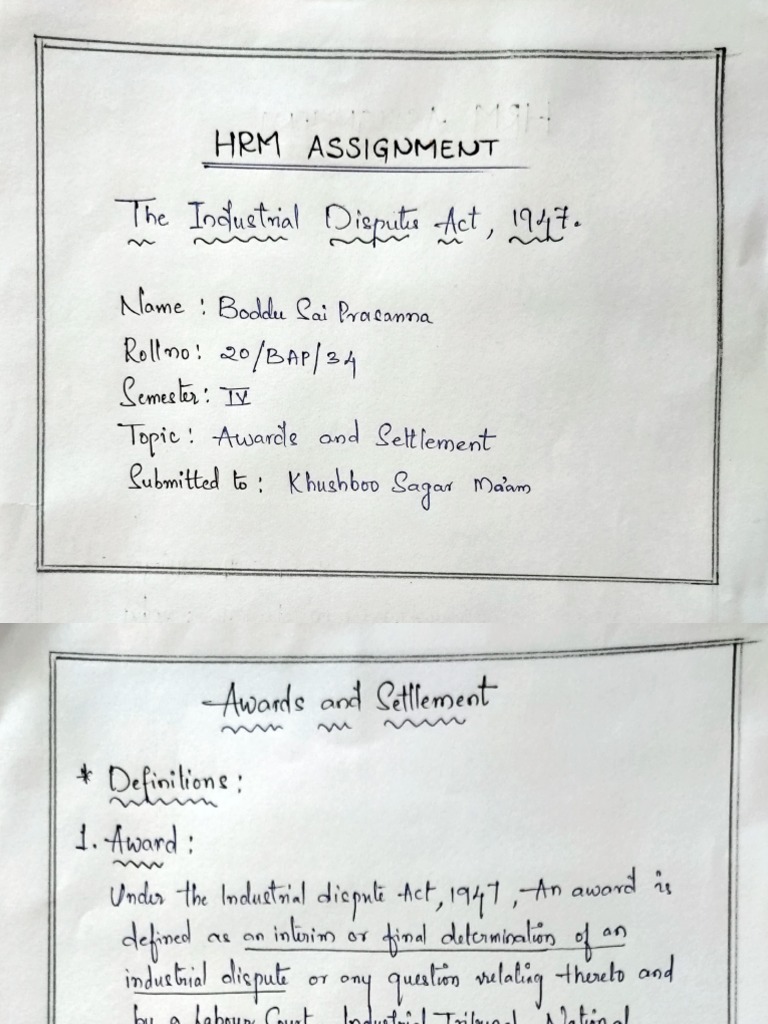 HRM ASSIGNMENT
The Industrial Disputes Act, 1947.
Name : Boddu Sai Prasanna
Roll no : 20/BAP/34
Semester : IV
Topic : Awards and Settlement
Submitted to : Khushboo Sagar Ma'am
Awards and Settlement
* Definitions :
1. Award :
Under the Industrial dispute Act, 1947, An award is
defined as an interim or final determination of an
industrial dispute or any question relating thereto and
by a Labour Court, Industrial Tribunal, National